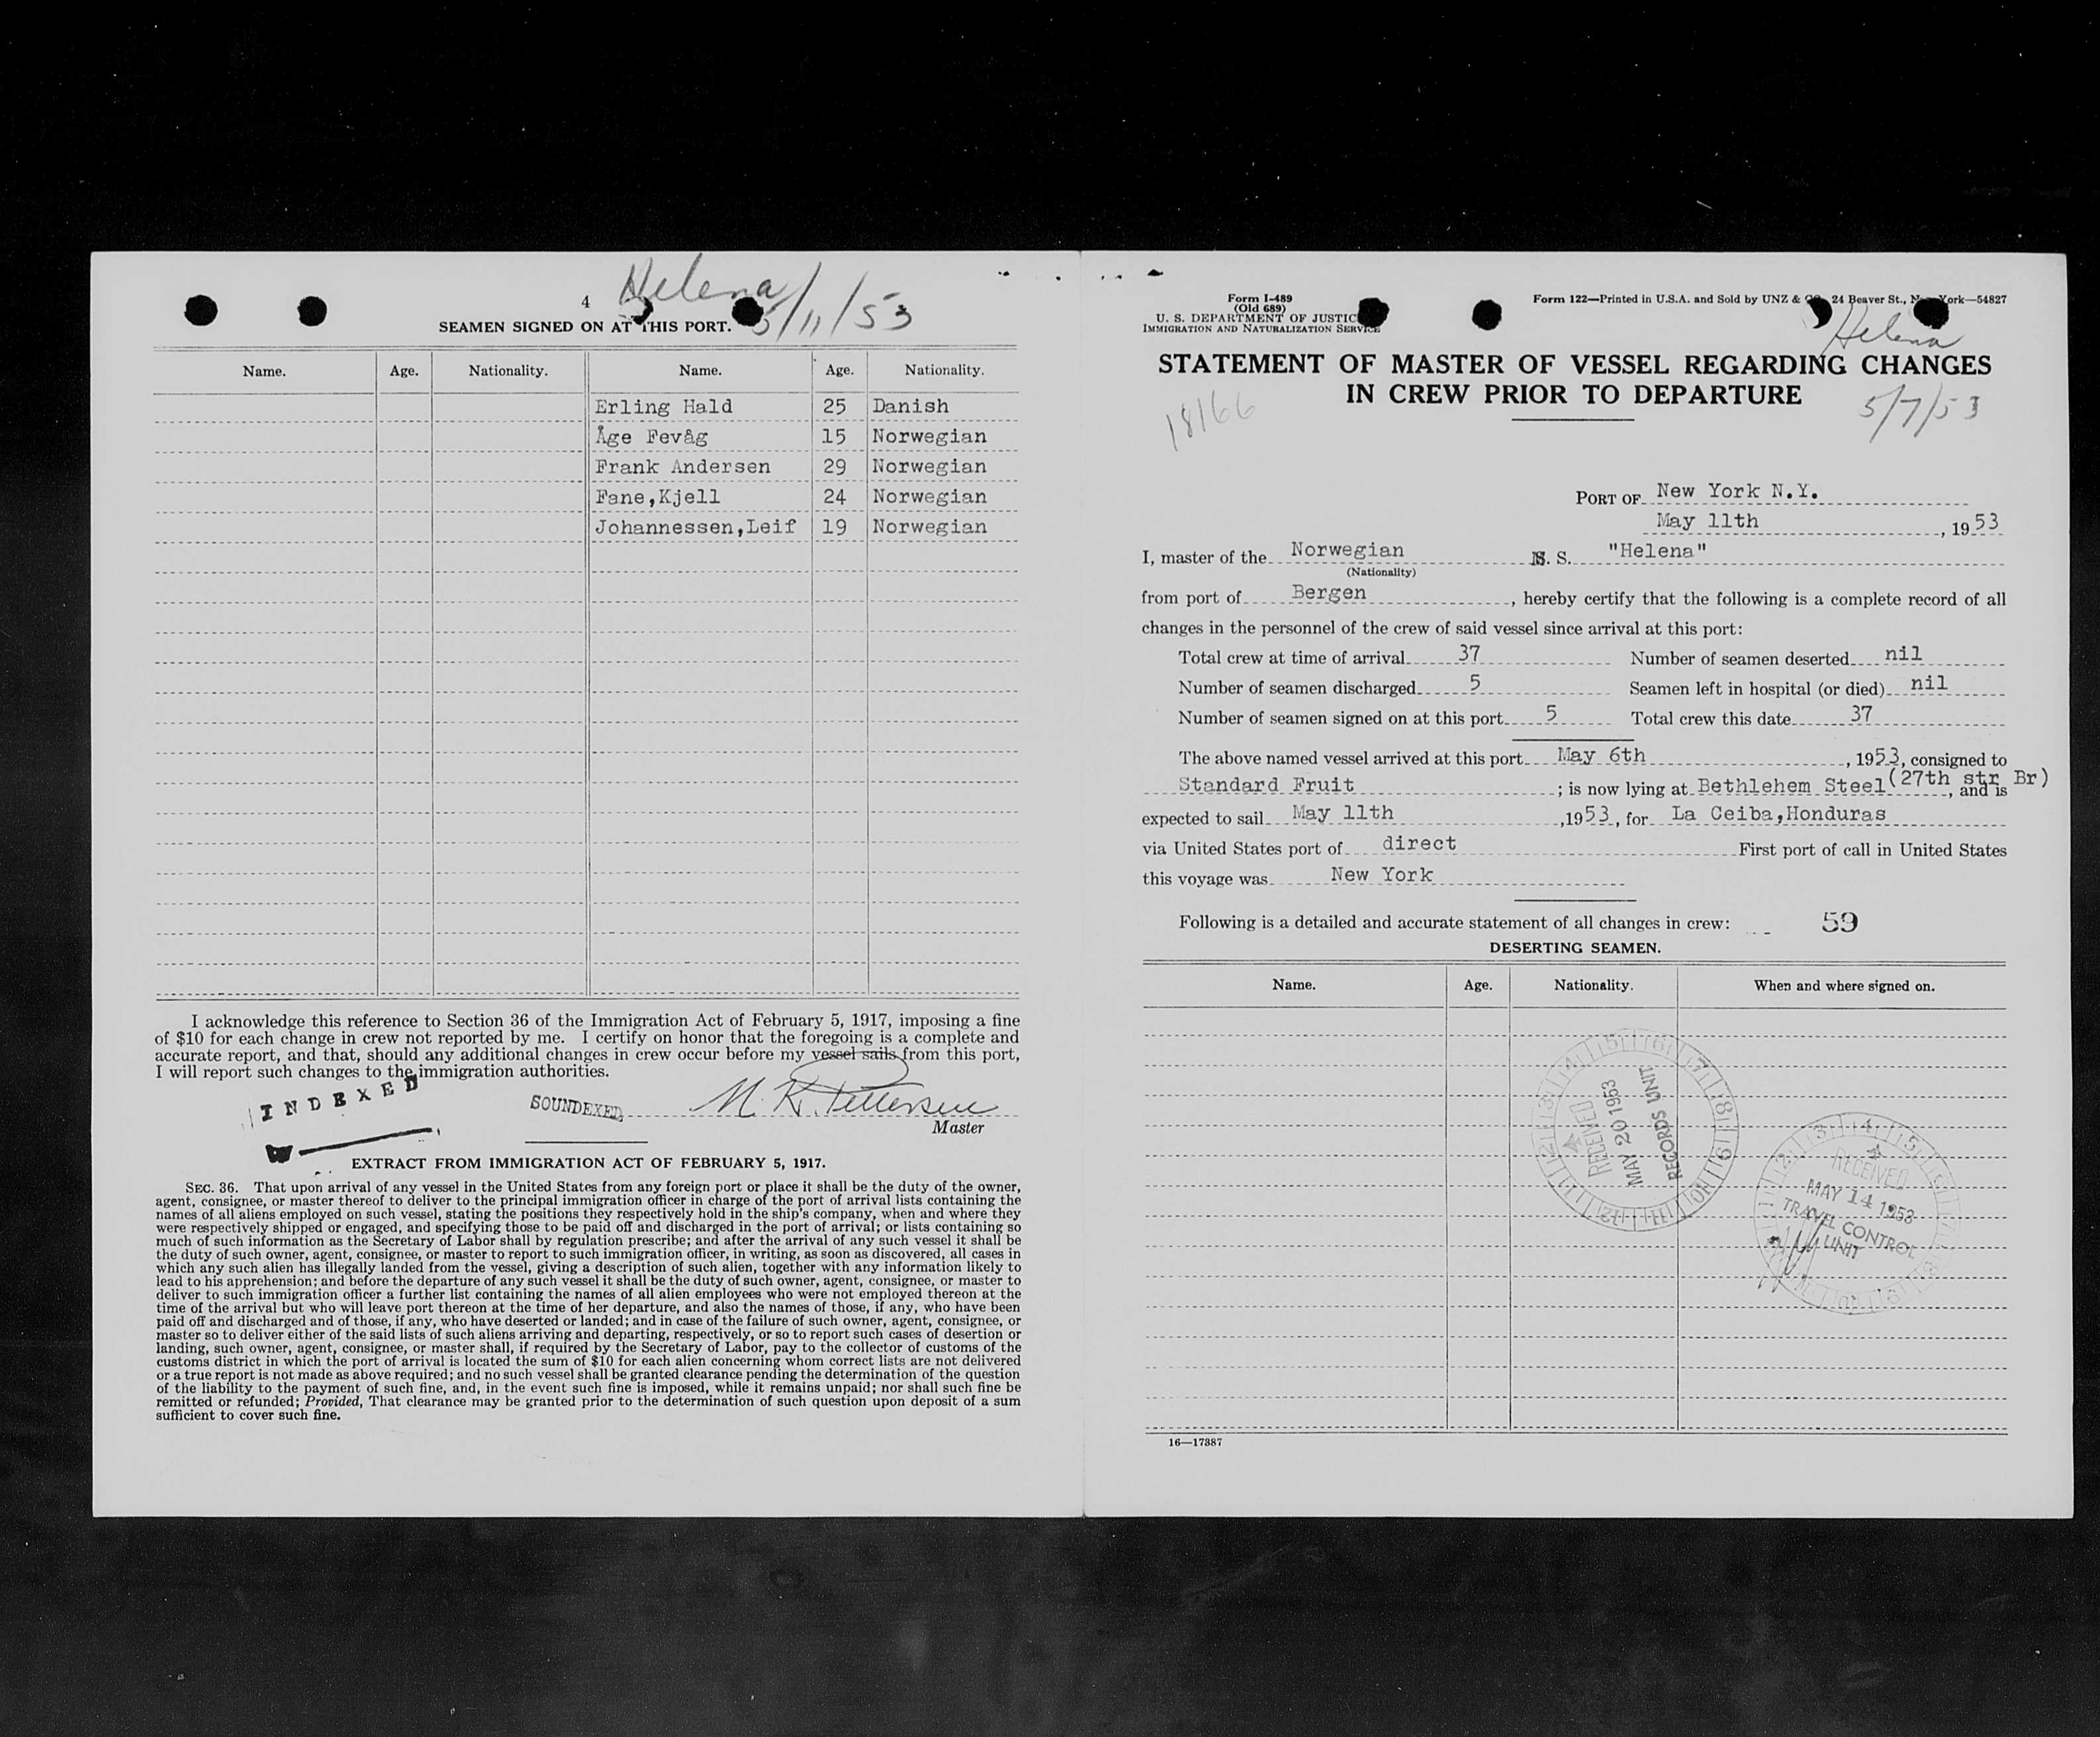 4
Helena
5/11/53
SEAMEN SIGNED ON AT THIS PORT.
Name. Age. Nationality. Name. Age. Nationality.
Erling Hald 25 Danish
Åge Fevåg 15 Norwegian
Frank Andersen 29 Norwegian
Fane,Kjell 24 Norwegian
Johannessen,Leif 19 Norwegian
I acknowledge this reference to Section 36 of the Immigration Act of February 5, 1917, imposing a fine
of $10 for each change in crew not reported by me. I certify on honor that the foregoing is a complete and
accurate report, and that, should any additional changes in crew occur before my vessel sails from this port,
I will report such changes to the immigration authorities.
INDEXED
SOUNDEXED
M. K. Pettersen
Master
EXTRACT FROM IMMIGRATION ACT OF FEBRUARY 5, 1917.
SEC. 36. That upon arrival of any vessel in the United States from any foreign port or place it shall be the duty of the owner,
agent, consignee, or master thereof to deliver to the principal immigration officer in charge of the port of arrival lists containing the
names of all aliens employed on such vessel, stating the positions they respectively hold in the ship's company, when and where they
were respectively shipped or engaged, and specifying those to be paid off and discharged in the port of arrival; or lists containing so
much of such information as the Secretary of Labor shall by regulation prescribe; and after the arrival of any such vessel it shall be
the duty of such owner, agent, consignee, or master to report to such immigration officer, in writing, as soon as discovered, all cases in
which any such alien has illegally landed from the vessel, giving a description of such alien, together with any information likely to
lead to his apprehension; and before the departure of any such vessel it shall be the duty of such owner, agent, consignee, or master to
deliver to such immigration officer a further list containing the names of all alien employees who were not employed thereon at the
time of the arrival but who will leave port thereon at the time of her departure, and also the names of those, if any, who have been
paid off and discharged and of those, if any, who have deserted or landed; and in case of the failure of such owner, agent, consignee, or
master so to deliver either of the said lists of such aliens arriving and departing, respectively, or so to report such cases of desertion or
landing, such owner, agent, consignee, or master shall, if required by the Secretary of Labor, pay to the collector of customs of the
customs district in which the port of arrival is located the sum of $10 for each alien concerning whom correct lists are not delivered
or a true report is not made as above required; and no such vessel shall be granted clearance pending the determination of the question
of the liability to the payment of such fine, and, in the event such fine is imposed, while it remains unpaid; nor shall such fine be
remitted or refunded; Provided, That clearance may be granted prior to the determination of such question upon deposit of a sum
sufficient to cover such fine.
Form I-489
(Old 689)
U. S. DEPARTMENT OF JUSTICE
IMMIGRATION AND NATURALIZATION SERVICE
Form 122—Printed in U.S.A. and Sold by UNZ & CO., 24 Beaver St., New York—54827
Helena
STATEMENT OF MASTER OF VESSEL REGARDING CHANGES
IN CREW PRIOR TO DEPARTURE
18166
5/7/53
PORT OF New York N.Y.
May 11th, 1953
I, master of the Norwegian M. S. "Helena"
(Nationality)
from port of Bergen, hereby certify that the following is a complete record of all
changes in the personnel of the crew of said vessel since arrival at this port:
Total crew at time of arrival 37 Number of seamen deserted nil
Number of seamen discharged 5 Seamen left in hospital (or died) nil
Number of seamen signed on at this port 5 Total crew this date 37
The above named vessel arrived at this port May 6th, 1953, consigned to
Standard Fruit; is now lying at Bethlehem Steel (27th str Br), and is
expected to sail May 11th, 1953, for La Ceiba,Honduras
via United States port of direct First port of call in United States
this voyage was New York
Following is a detailed and accurate statement of all changes in crew: 59
DESERTING SEAMEN.
Name. Age. Nationality. When and where signed on.
RECEIVED
MAY 20 1953
RECORDS UNIT
RECEIVED
MAY 14 1953
TRAVEL CONTROL
UNIT
16—17387